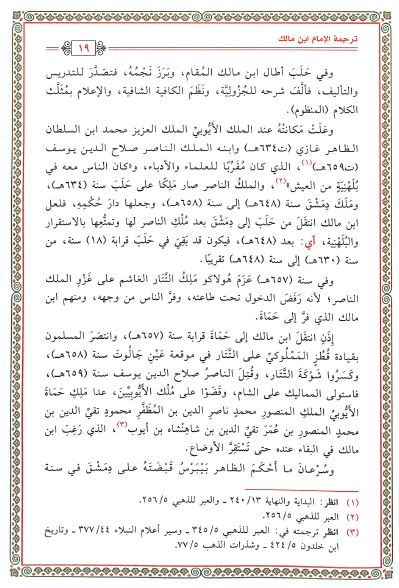 ترجمة الإمام ابن مالك
١٩
وفي حَلَبَ أطال ابن مالك المُقام، وبَرَزَ نَجْمُهُ، فتصَدَّرَ للتدريس
والتأليف، فألَّفَ شرحه للجُزُولِيَّة، ونَظَمَ الكافية الشافية، والإعلام بمُثَلَّث
الكلام (المنظوم).
وعَلَتْ مَكانتُهُ عند الملك الأَيُّوبِيِّ الملك العزيز محمد ابن السلطان
الظاهر غازي (ت٦٣٤هـ) وابنه الملك الناصر صلاح الدين يوسف
(ت٦٥٩هـ)(١)، الذي كان مُقَرِّبًا للعلماء والأدباء، و«كان الناس معه في
بُلَهْنِيَةٍ من العيش»(٢)، والملكُ الناصر صار مَلِكًا على حَلَبَ سنة (٦٣٤هـ)،
ومَلَكَ دِمَشْقَ سنة (٦٤٨هـ) إلى سنة (٦٥٨هـ)، وجعلها دارَ حُكْمِهِ، فلعل
ابن مالك انتقلَ من حَلَبَ إلى دِمَشْقَ بعد مُلْكِ الناصر لها وتمتُّعِها بالاستقرار
والبُلَهْنِيَة، أي: بعد (٦٤٨هـ)، فيكون قد بَقِيَ في حَلَبَ قرابة (١٨) سنة، من
(٦٣٠هـ) إلى سنة (٦٤٨هـ) تقريبًا.
وفي سنة (٦٥٧هـ) عَزَمَ هُولاكو مَلِكُ التَّتَار الغاشم على غَزْوِ الملك
الناصر؛ لأنه رفَضَ الدخول تحت طاعته، وفرَّ الناس من وجهه، ومنهم ابن
مالك الذي فرَّ إلى حَمَاةَ.
إِذَنِ انتقَلَ ابن مالك إلى حَمَاةَ قرابة سنة (٦٥٧هـ)، وانتصَرَ المسلمون
بقيادة قُطُزٍ المَمْلُوكِيِّ على التَّتَار في موقعة عَيْنِ جَالُوتَ سنة (٦٥٨هـ)،
وكَسَرُوا شَوْكَةَ التَّتَار، وقُتِلَ الناصرُ صلاح الدين يوسف سنة (٦٥٩هـ)،
فاستولى المماليك على الشام، وقَضَوْا على مُلْك الأَيُّوبِيِّينَ، عدا مَلِكِ حَمَاةَ
الأَيُّوبِيِّ الملكِ المنصورِ محمدٍ ناصرِ الدين بن المُظَفَّرِ محمودٍ تقيِّ الدين بن
محمدٍ المنصور بن عُمَرَ تقيِّ الدين بن شاهِنْشاه بن أيوب(٣)، الذي رَغِبَ ابن
مالك في البقاء عنده حتى تَسْتَقِرَّ الأوضاع.
وسُرْعانَ ما أَحْكَمَ الظاهر بَيْبَرْسُ قَبْضَتَهُ على دِمَشْقَ في سنة
(١) انظر: البداية والنهاية ٢٤٠/١٣ ـ والعبر للذهبي ٢٥٦/٥.
(٢) العبر للذهبي ٢٥٦/٥.
(٣) انظر ترجمته في: العبر للذهبي ٣٤٥/٥ ـ وسير أعلام النبلاء ٣٧٧/٤٤ ـ وتاريخ
ابن خلدون ٤٢٤/٥ ـ وشذرات الذهب ٧٧/٥.